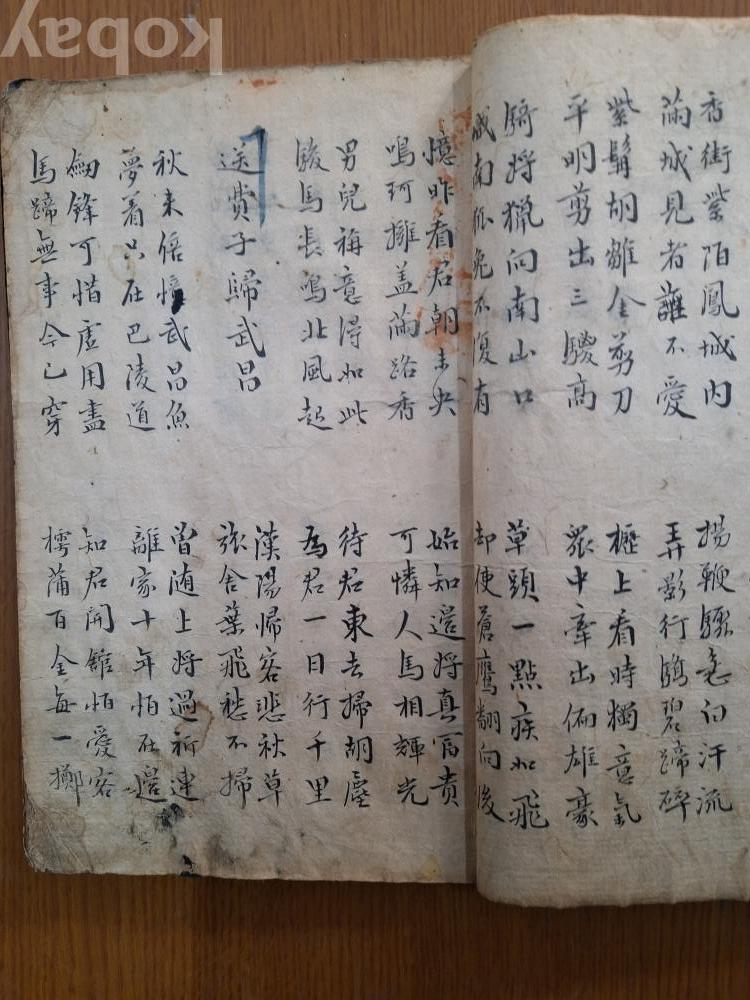 香街紫陌鳳城內
滿城見者誰不愛
揚鞭驟急白汗流
弄影行驕碧蹄碎
紫髯胡雛金剪刀
平明剪出三騣高
櫪上看時獨意氣
衆中牽出偏雄豪
騎將獵向南山口
城南狐兔不復有
草頭一點疾如飛
却使蒼鷹翻向後
憶昨看君朝未央
鳴珂擁盖滿路香
始知邊將真富貴
可憐人馬相輝光
男兒稱意得如此
駿馬長鳴北風起
待君東去掃胡塵
為君一日行千里
送費子歸武昌
漢陽歸客悲秋草
旅舍葉飛愁不掃
秋來倍憶武昌魚
夢着只在巴陵道
曾随上將過祈連
離家十年怕在邊
劒鋒可惜虛用盡
馬蹄無事今已穿
知君開舘怕愛客
樗蒲百金每一擲
kobay